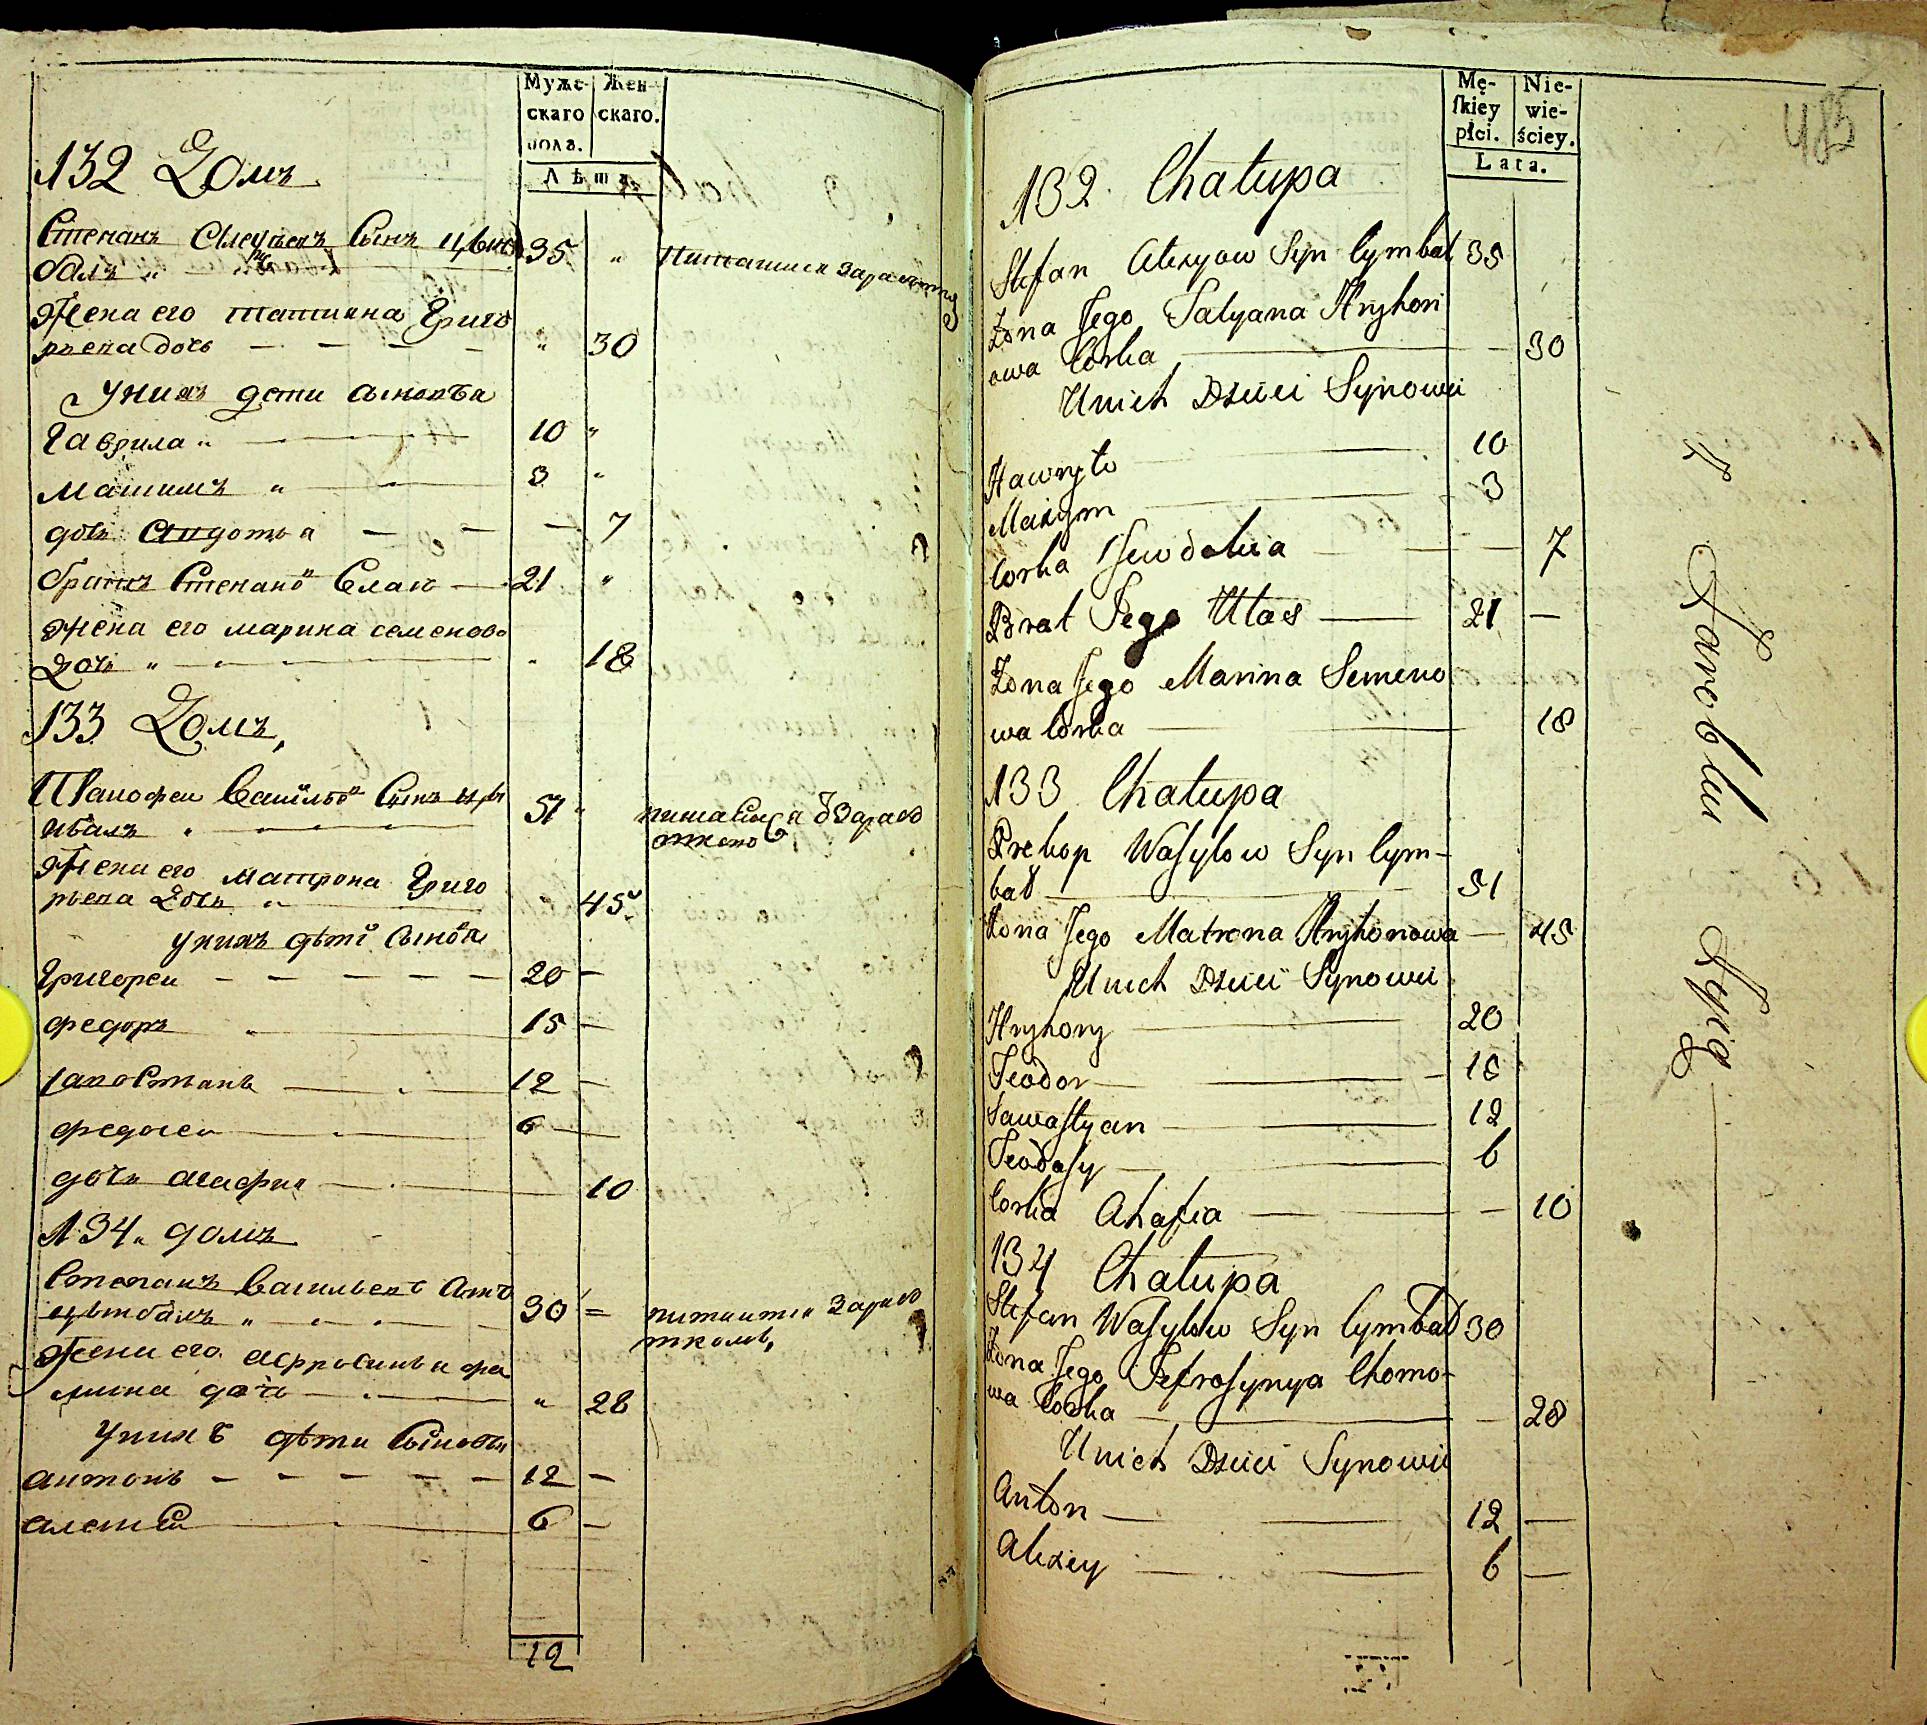 Муже- Жен-
скаго скаго.
пола.
Лѣта.
132 Домъ
Степанъ Алеѯѣевъ Сынъ Цѣм 35 „ Питается заработку
балъ „
Жена его татиана Григо
рьева дочь — — — — „ 30
Унихъ дети сыновья
Гаврила „ — 10 „
Маѯимъ „ — 3 „
дочь Авдотья — — — 7
братъ Степановъ Власъ — 21 „
Жена его марина семенова
Дочь „ — „ 18
133 Домъ,
Прокофеи Васильевъ Сынъ Цѣ 51 „ питаются зарабо
мбалъ „ ткою
Жена его Матрона Григо
рьева Дочь „ „ 45
унихъ дѣти Сыновья
Григореи — — — — — 20 —
федоръ „ 15 —
савостианъ — 12 —
федосеи — 6 —
дочь агафия — 10
134 „ домъ
Степанъ Васильевъ Сынъ
цымбалъ „ 30 = питается Зарабо
Жена его афросинья фо ткомъ,
мина дочь — „ 28
Унихъ дѣти Сыновья
антонъ — — — — — 12 —
алеѯей — 6 —
12
Mę- Nie-
skiey wie-
płci. ściey.
Lata.
485
132 Chałupa
Stefan Alexyow Syn Cymbał 35
Zona Jego Tatyana Hryhori
owa Corka — 30
Unich Dzieci Synowie
Hawryło — 10
Maxym — 3
Corka Jewdokia — — — 7
Brat Jego Ułas — 21 —
Zona Jego Marina Semeno
wa Corka — 18
133 Chałupa
Prokop Wasylow Syn Cym-
bał — 51
Zona Jego Matrona Hryhorowa — 45
Unich Dzieci Synowie
Hryhory — 20
Teodor — 15
Sawastyan — 12
Teodosy — 6
Corka Ahafia — — — 10
134 Chałupa
Stefan Wasylow Syn Cymbał 30
Zona Jego Jefrosynya Chomo-
wa Corka — 28
Unich Dzieci Synowie
Anton — 12 —
Alexiey — 6 —